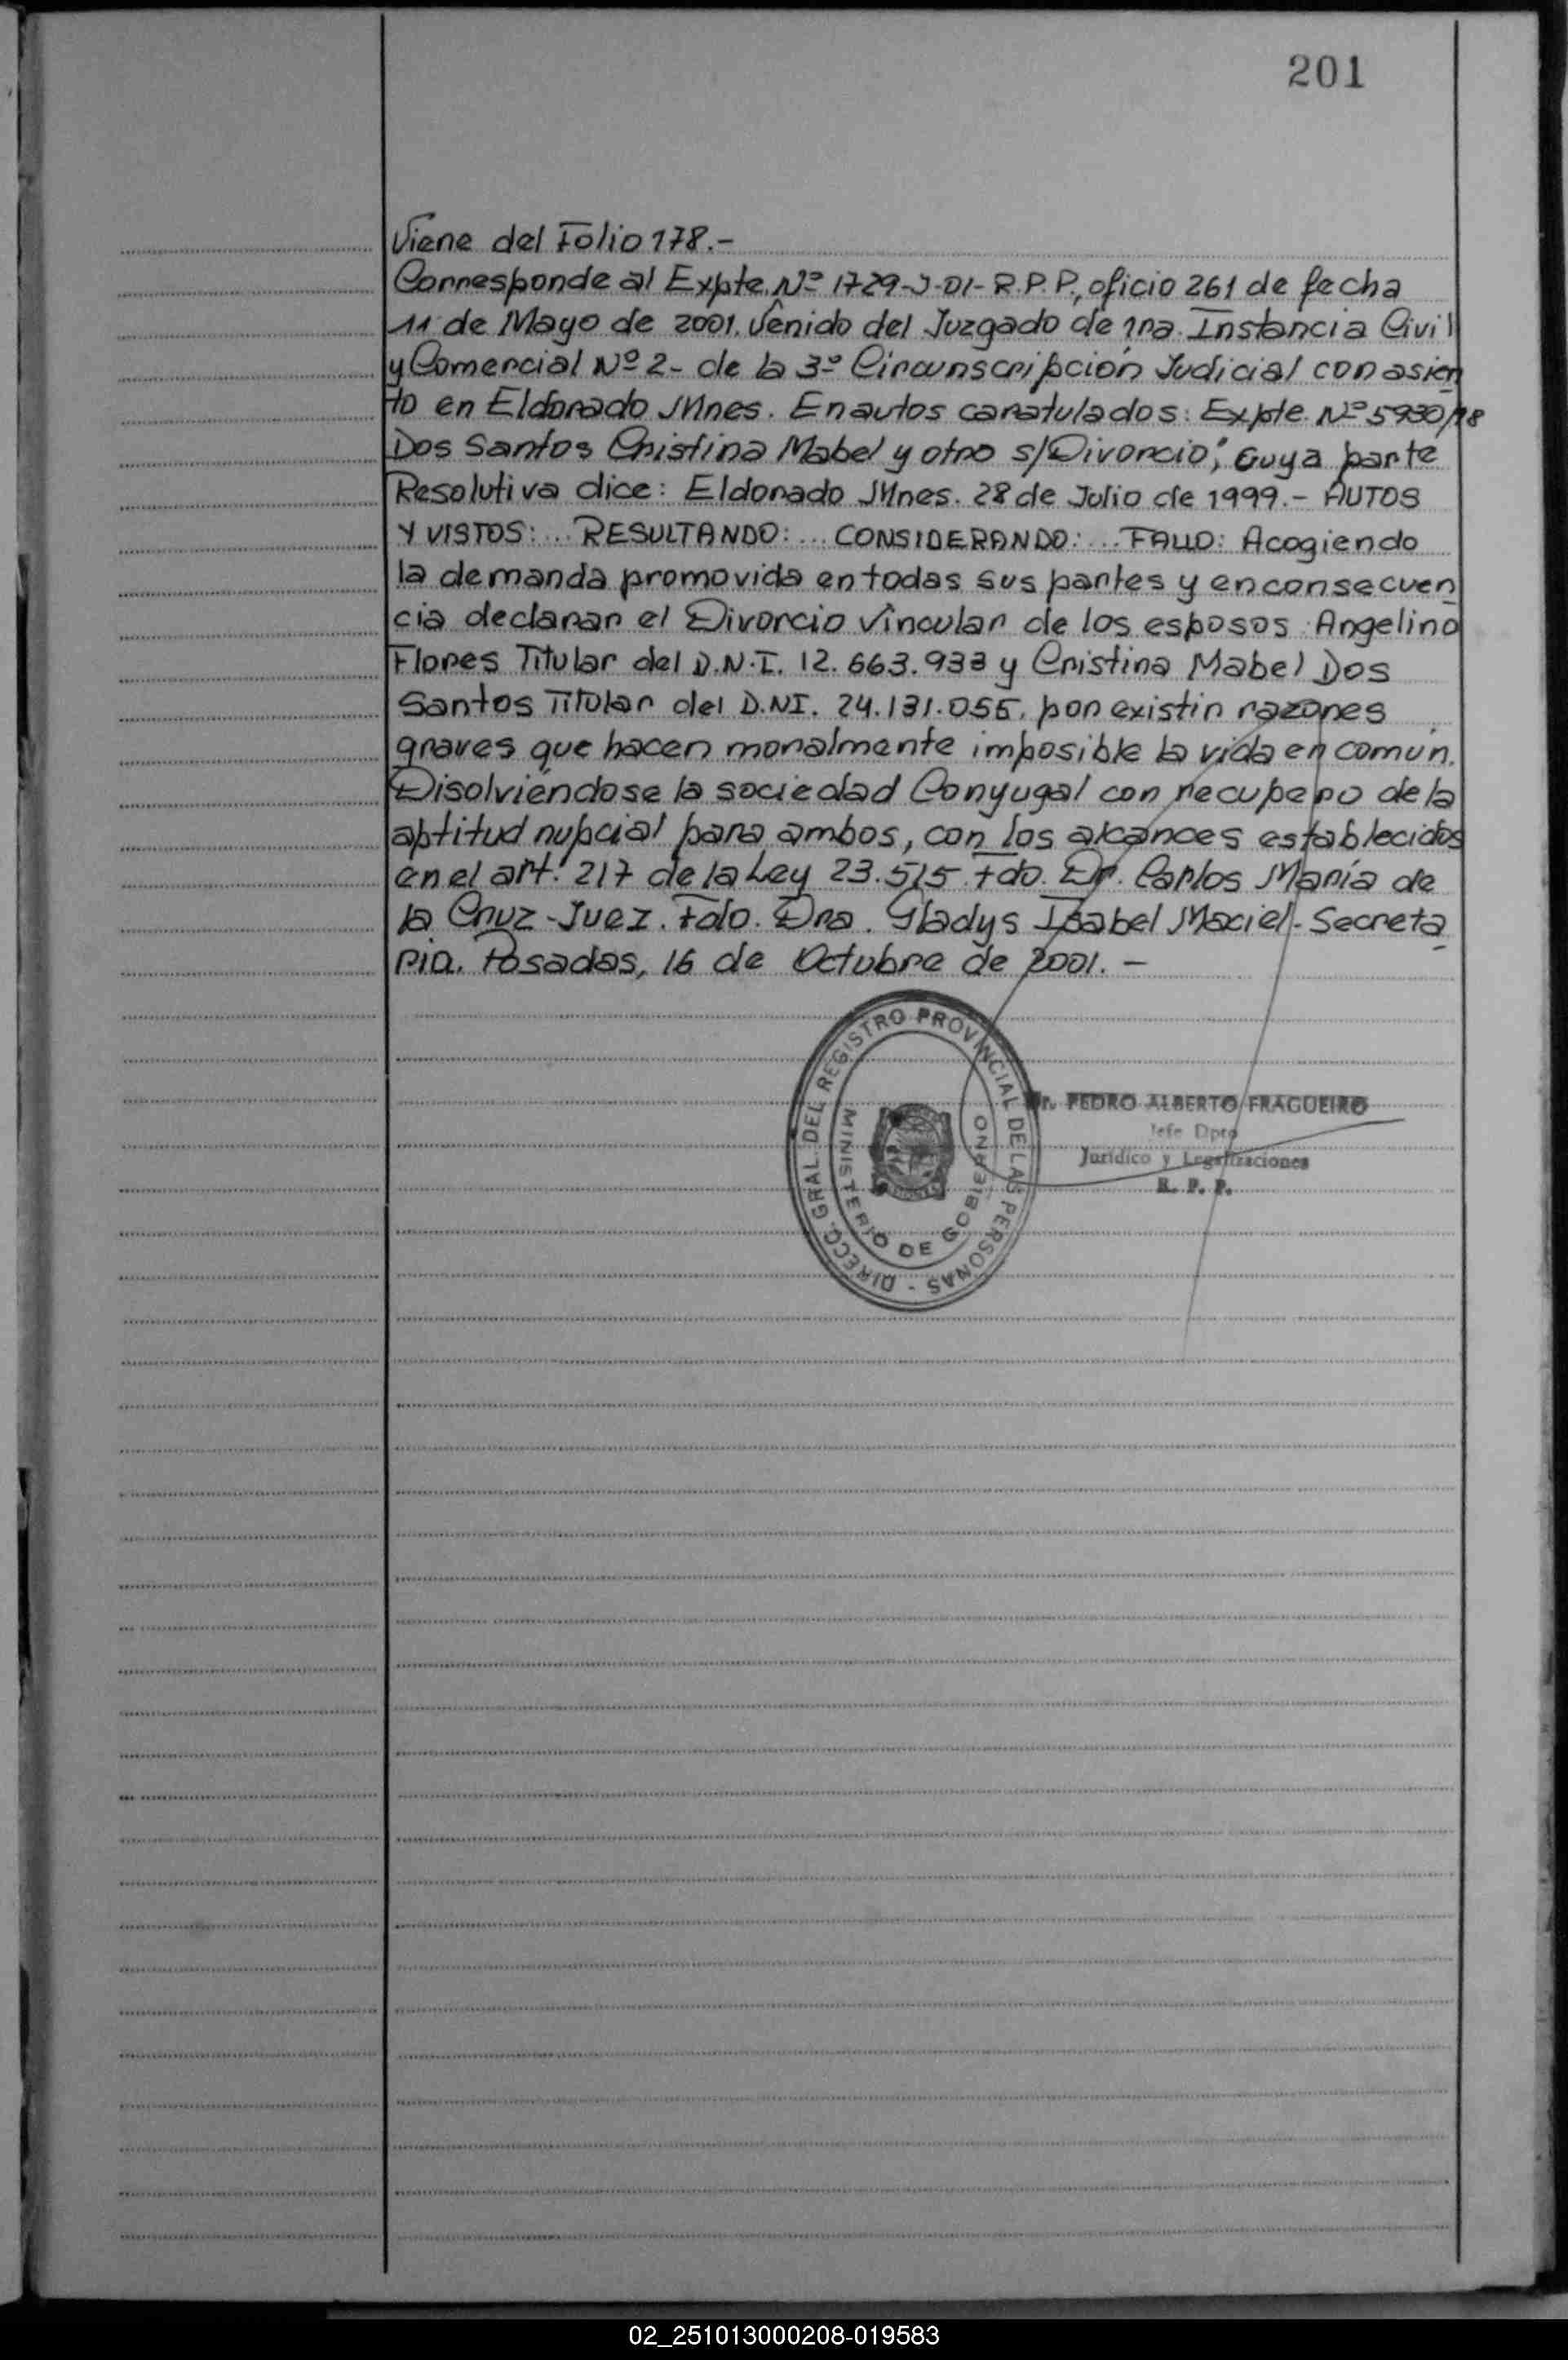 201
Viene del Folio 178.-
Corresponde al Expte. Nº 1729-J-01- R.P.P., oficio 261 de fecha
11 de Mayo de 2001. Venido del Juzgado de 1ra. Instancia Civil
y Comercial Nº 2- de la 3º Circunscripción Judicial con asien
to en Eldorado Mnes. En autos caratulados: Expte. Nº 5930/98
Dos Santos Cristina Mabel y otro s/Divorcio", Cuya parte
Resolutiva dice: Eldorado Mnes. 28 de Julio de 1999.- AUTOS
Y VISTOS: ... RESULTANDO: ... CONSIDERANDO: ... FALLO: Acogiendo
la demanda promovida en todas sus partes y en consecuen
cia declarar el Divorcio Vincular de los esposos Angelino
Flores Titular del D.N.I. 12.663.933 y Cristina Mabel Dos
Santos Titular del D.NI. 24.131.055. por existir razones
graves que hacen moralmente imposible la vida en común.
Disolviéndose la sociedad Conyugal con recupero de la
aptitud nupcial para ambos, con los alcances establecidos
en el art. 217 de la Ley 23.515. Fdo. Dr. Carlos María de
la Cruz - Juez. Fdo. Dra. Gladys Isabel Maciel - Secreta
ria. Posadas, 16 de Octubre de 2001. -
DIRECC. GRAL. DEL REGISTRO PROVINCIAL DE LAS PERSONAS -
MINISTERIO DE GOBIERNO
Dr. PEDRO ALBERTO FRAGUEIRO
Jefe Dpto
Jurídico y Legalizaciones
R. P. P.
02_251013000208-019583